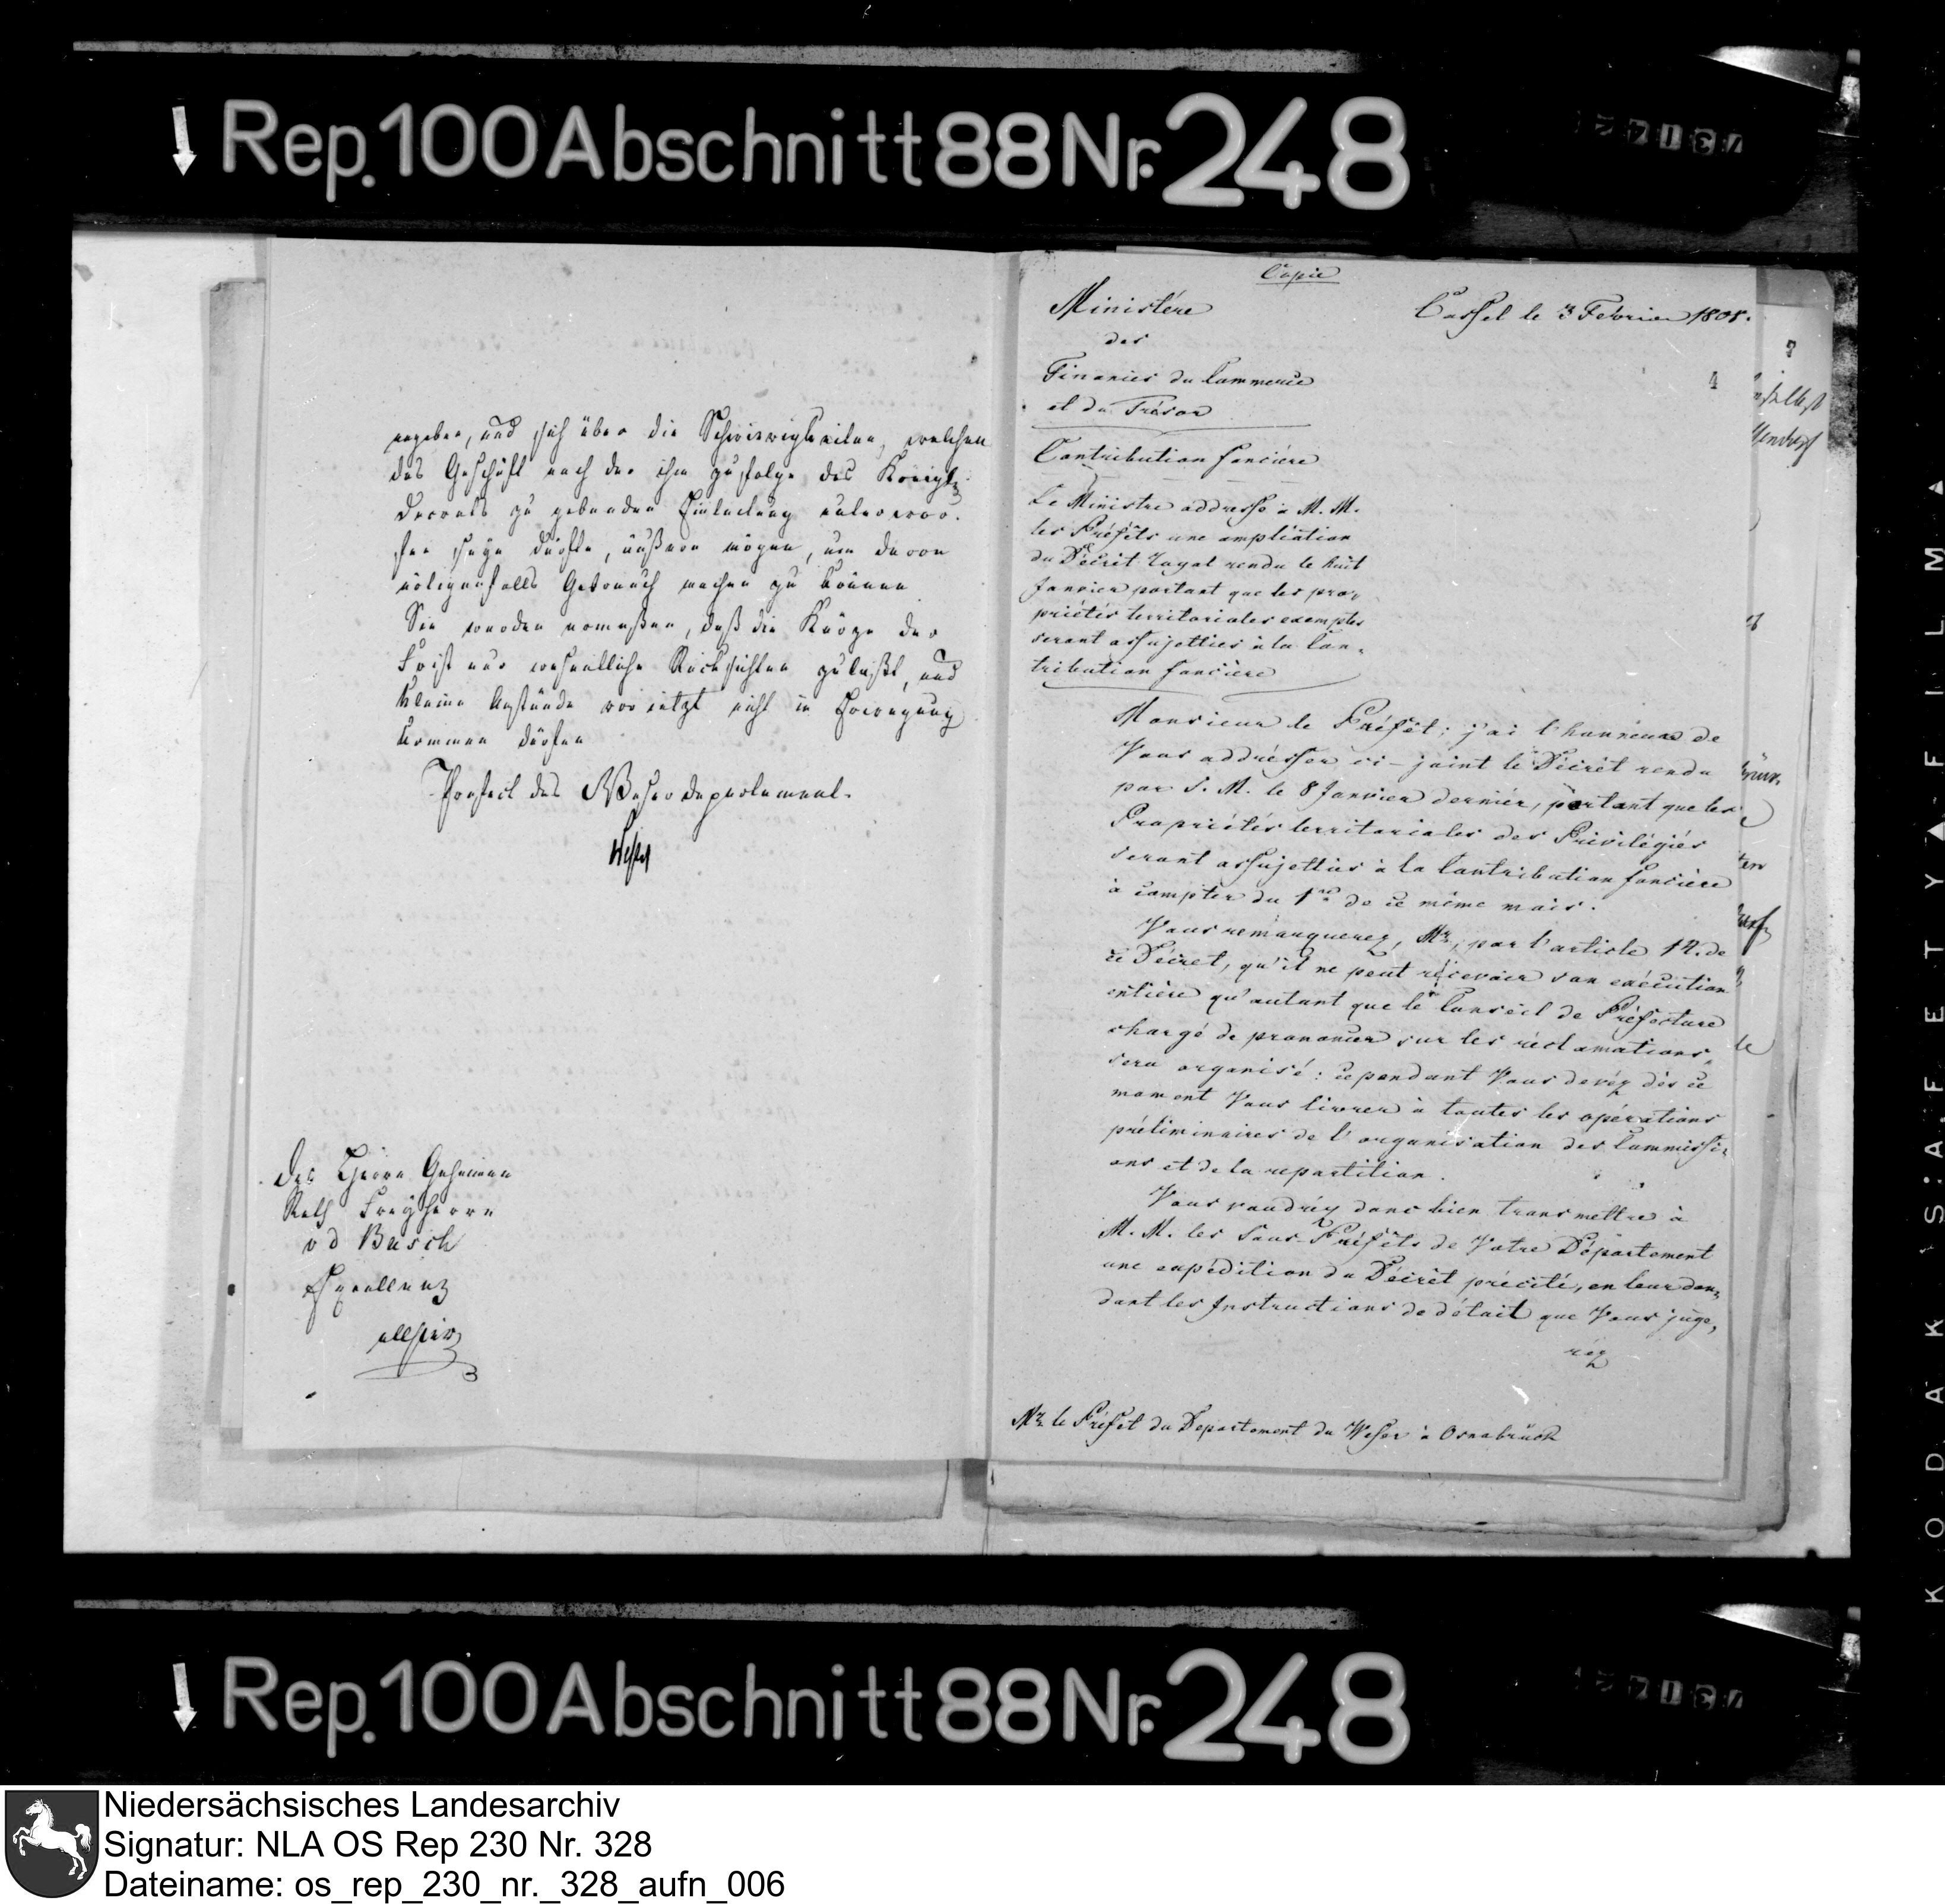 Rep. 100 Abschnitt 88 Nr. 248
ergeben, und sich über die Schwierigkeiten, welchen
das Geschäft nach der ihm zufolge des Königl.
Decrets zu gebenden Einleitung unterwor-
fen seyn dürfte, äußern mögen, um davon
nötigenfalls Gebrauch machen zu können
Sie werden ermeßen, daß die Kürze der
Frist nur wesentliche Rücksichten zuläßt, und
kleine Anstände vor jetzt nicht in Erwegung
kommen dürfen
Praefect des Weserdepartement.
Des Herrn Geheimen
Rath Freyherrn
v d Busch
Excellenz
allhier
Copie
Ministére
des
Finances du Commerce
et du Trésor
Cassel le 3 Fevrier 1808.
4
Contribution fonciére
Le Ministre addresse à M. M.
les Préfèts une ampliation
du Décrèt Royal rendu le huit
Janvier portant que les pro-
priétés territoriales exemptes
seront assujetties à la Con-
tribution foncière
Monsieur le Préfèt; j'ai l'honneur de
Vous addrésser ci-joint le Décrèt rendu
par S. M. le 8 Janvier dernièr, portant que les
Propriétés territoriales des Privilégiés
seront assujetties à la Contribution foncière
à compter du 1er de ce même mois.
Vous remarquerez, Mr, par l'article 12. de
ce Décret, qu'il ne peut récevoir son exécution
entière qu'autant que le Conseil de Préfecture
chargé de prononcer sur les réclamations,
sera organisé: cependant Vous devéz dès ce
moment Vous livrer à toutes les opérations
préliminaires de l'organisation des Commissi-
ons et de la repartition.
Vous voudréz donc bien transmettre à
M. M. les Sous-Préfèts de Votre Département
une expédition du Décrèt précité, en leur don-
dant les Instructions de détail que Vous juge-
réz
Mr. le Préfèt du Departement du Weser à Osnabrück
KODAK SAFETY FILM
Rep. 100 Abschnitt 88 Nr. 248
Niedersächsisches Landesarchiv
Signatur: NLA OS Rep 230 Nr. 328
Dateiname: os_rep_230_nr._328_aufn_006